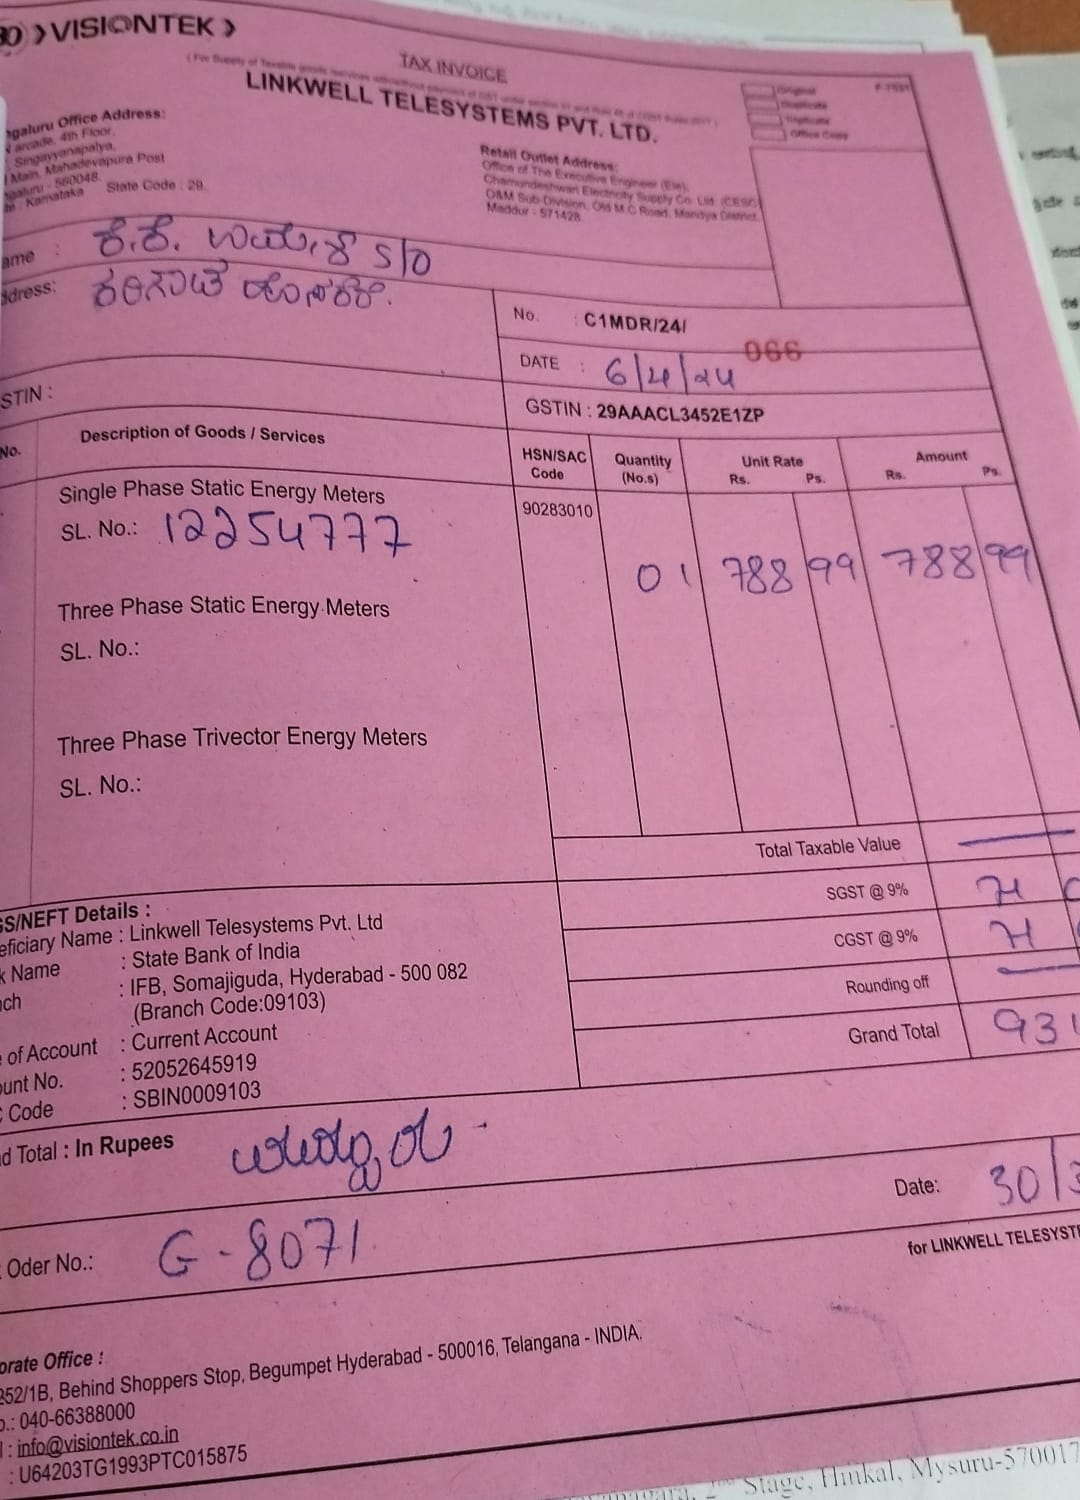 VISIONTEK
TAX INVOICE
LINKWELL TELESYSTEMS PVT. LTD.
Original
Duplicate
Triplicate
Office Copy
Office Address:
arcade, 4th Floor,
Singayyanapalya,
Main, Mahadevapura Post
560048.
Karnataka State Code : 29.
Retail Outlet Address:
Office of The Executive Engineer (Ele),
Chamundeshwari Electricity Supply Co. Ltd. (CESC)
O&M Sub-Division, Old M.C Road, Mandya District,
Maddur - 571428.
ಕೆ.ಕೆ. S/O
No. : C1MDR/24/ 066
DATE : 6/4/24
GSTIN : 29AAACL3452E1ZP
No. Description of Goods / Services HSN/SAC Code Quantity (No.s) Unit Rate Rs. Ps. Amount Rs. Ps.
Single Phase Static Energy Meters 90283010
SL. No.: 12254777 01 788 99 788 99
Three Phase Static Energy Meters
SL. No.:
Three Phase Trivector Energy Meters
SL. No.:
Total Taxable Value —
SGST @ 9% 71
CGST @ 9% 71
Rounding off —
Grand Total 931
/NEFT Details :
Name : Linkwell Telesystems Pvt. Ltd
Name : State Bank of India
: IFB, Somajiguda, Hyderabad - 500 082
(Branch Code:09103)
of Account : Current Account
No. : 52052645919
Code : SBIN0009103
Total : In Rupees
Oder No.: G-8071 Date: 30/3
for LINKWELL
Office :
252/1B, Behind Shoppers Stop, Begumpet Hyderabad - 500016, Telangana - INDIA.
: 040-66388000
: info@visiontek.co.in
: U64203TG1993PTC015875
Stage, Hinkal, Mysuru-570017